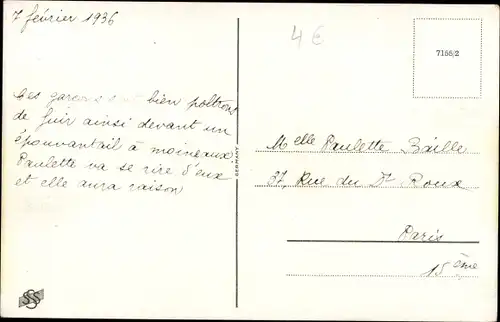 7 février 1936
4€
7155/2
Ces garçons sont bien poltrons
de fuir ainsi devant un
épouvantail à moineaux
Paulette va se rire d'eux
et elle aura raison
GERMANY
Melle Paulette Baille
37, Rue du Dr Roux
Paris
15ème
SS